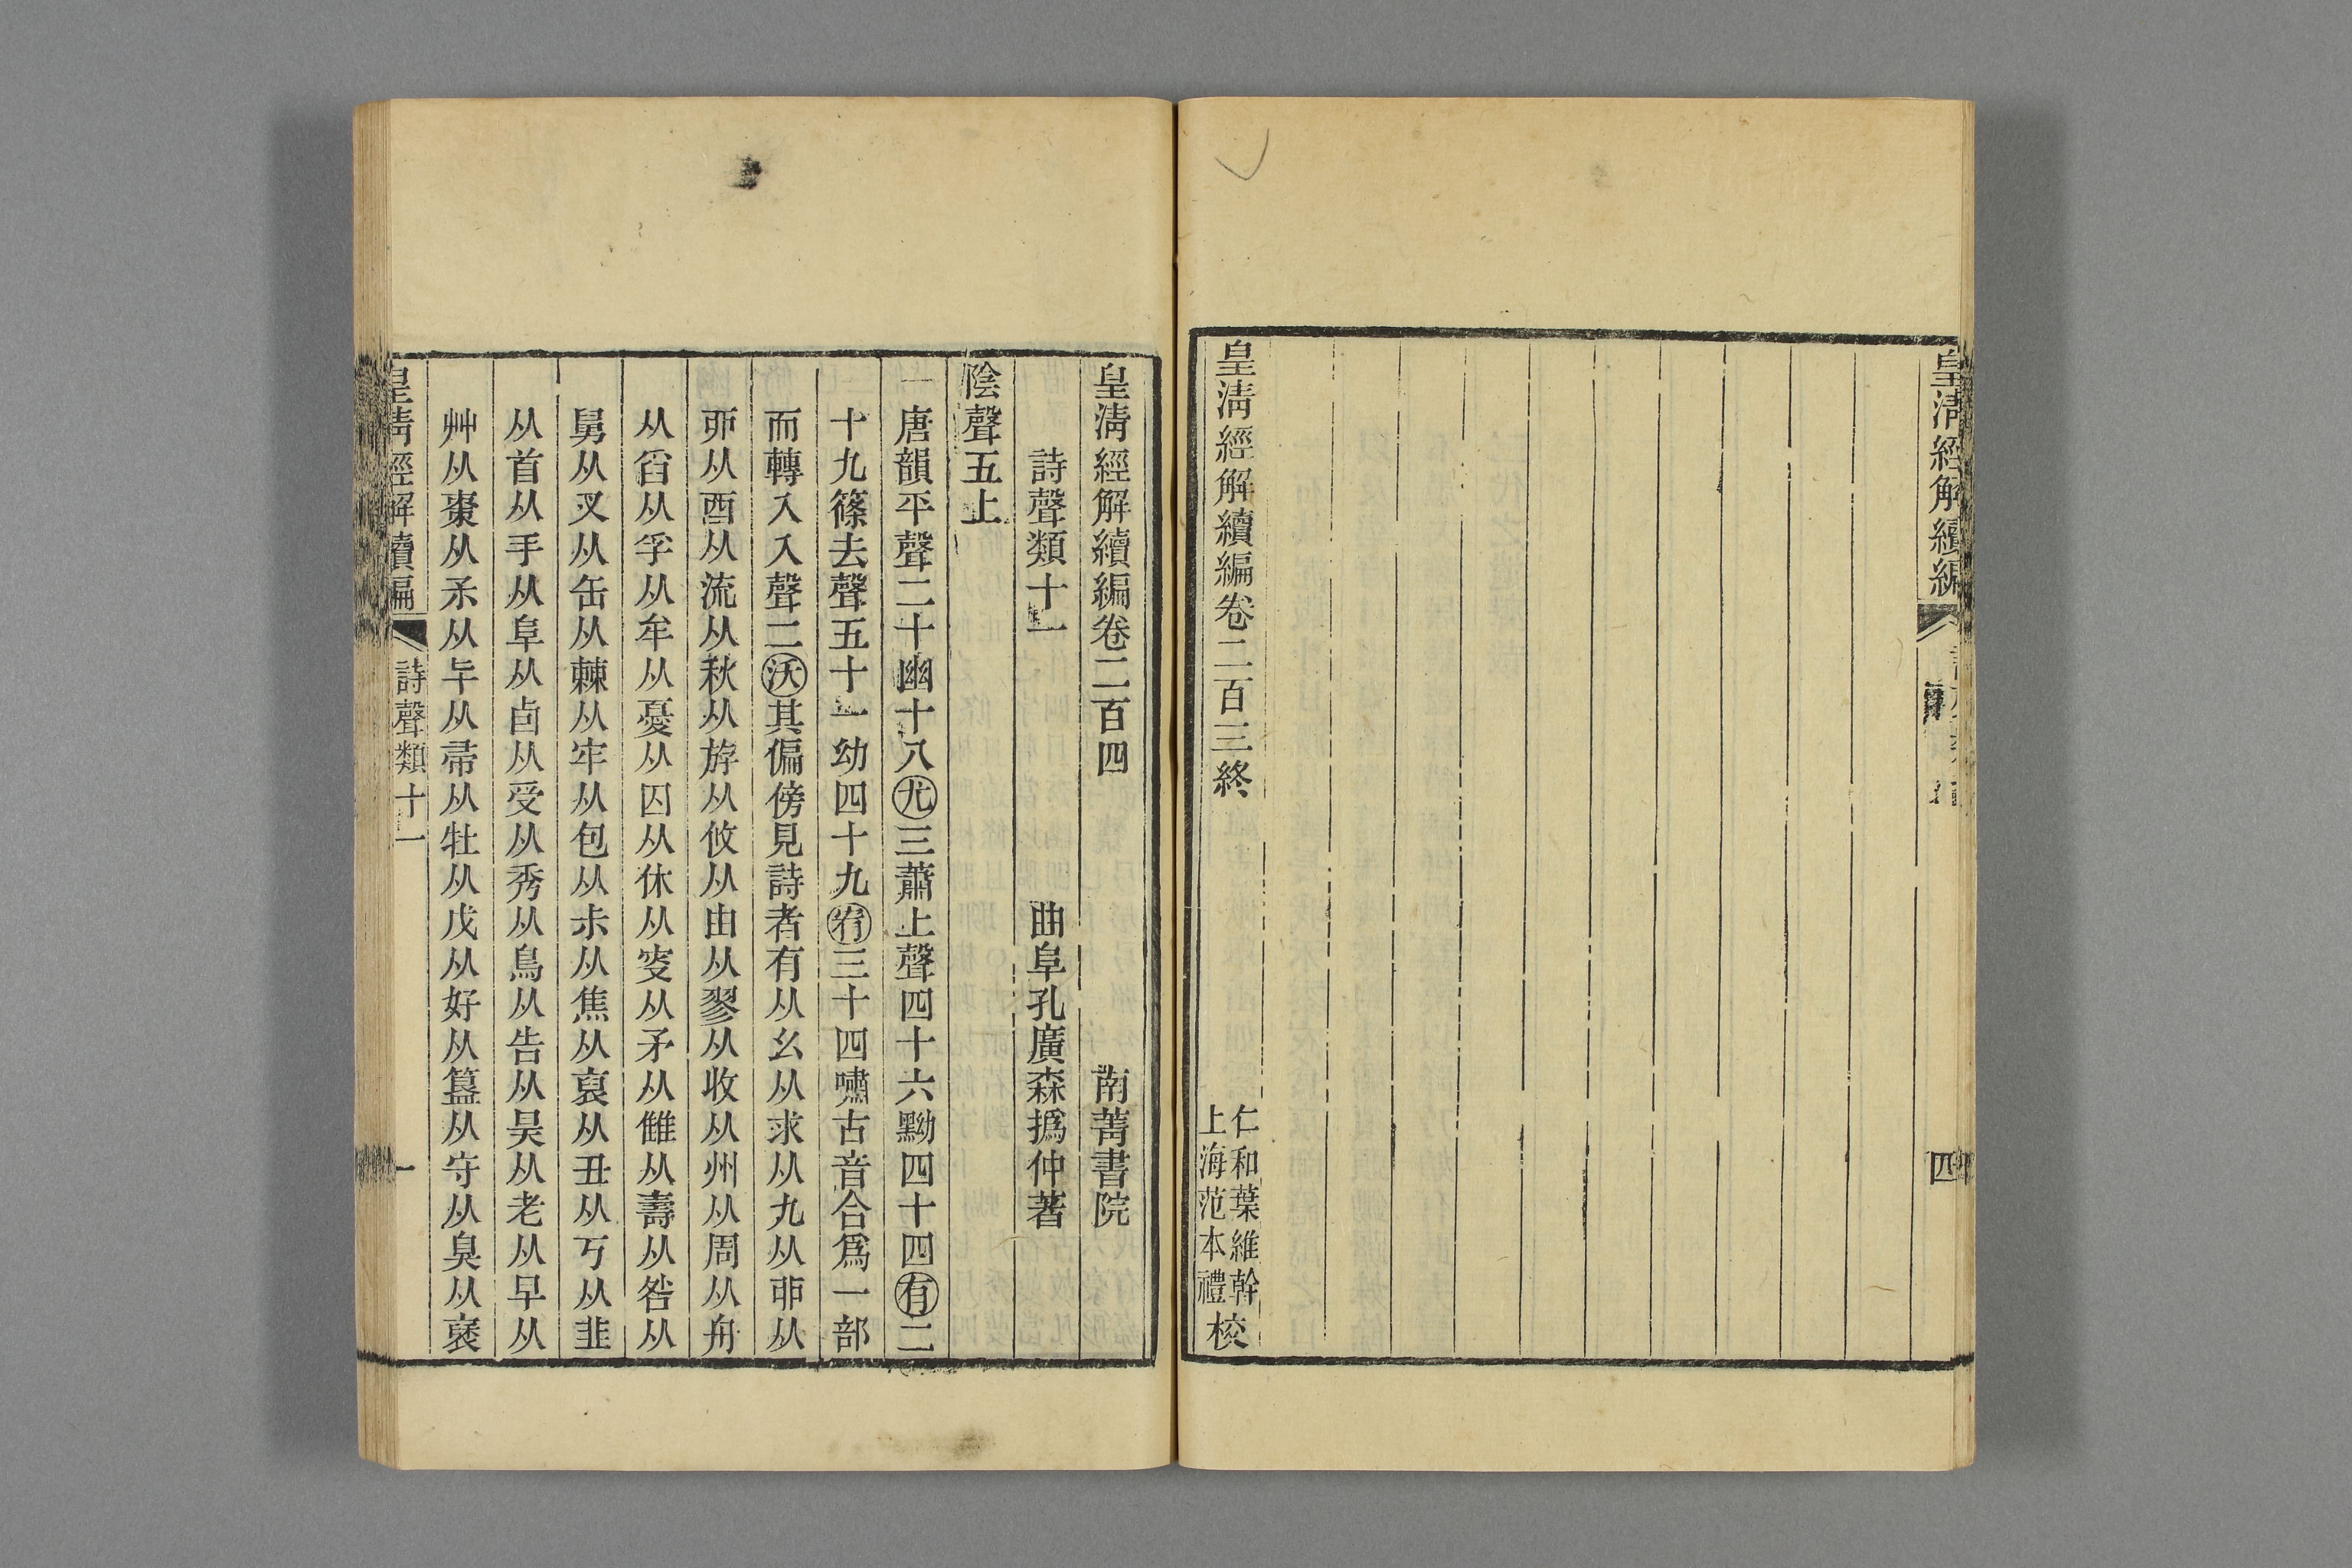 皇清經解續編
四
皇清經解續編卷二百三終
仁和葉維幹
上海范本禮
校
皇清經解續編卷二百四 南菁書院
詩聲類十一 曲阜孔廣森撝仲著
陰聲五上
一唐韻平聲二十幽十八尤三蕭上聲四十六黝四十四有二
十九篠去聲五十一幼四十九宥三十四嘯古音合爲一部
而轉入入聲二沃其偏傍見詩者有从幺从求从九从丣从
丣从酉从流从秋从斿从攸从由从翏从收从州从周从舟
从舀从孚从牟从憂从囚从休从叜从矛从雔从壽从咎从
舅从叉从缶从㯥从牢从包从尗从焦从裒从丑从丂从韭
从首从手从阜从卣从受从秀从鳥从告从昊从老从早从
艸从棗从帚从牡从戊从好从簋从守从臭从褎
皇清經解續編 詩聲類十一 一